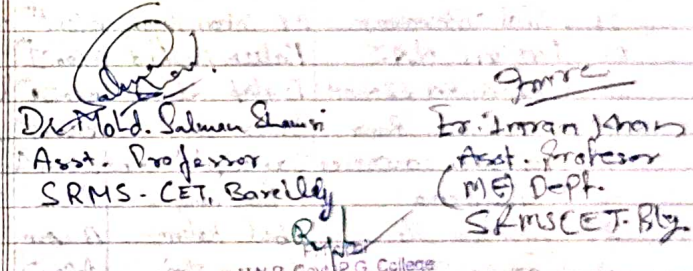 Dr. Mohd. Salman Shamsi
Asst. Professor
SRMS - CET, Bareilly
Er. Imran Khan
Asst. Profesor
(ME) Dept.
SRMSCET. Bly.
P.G. College